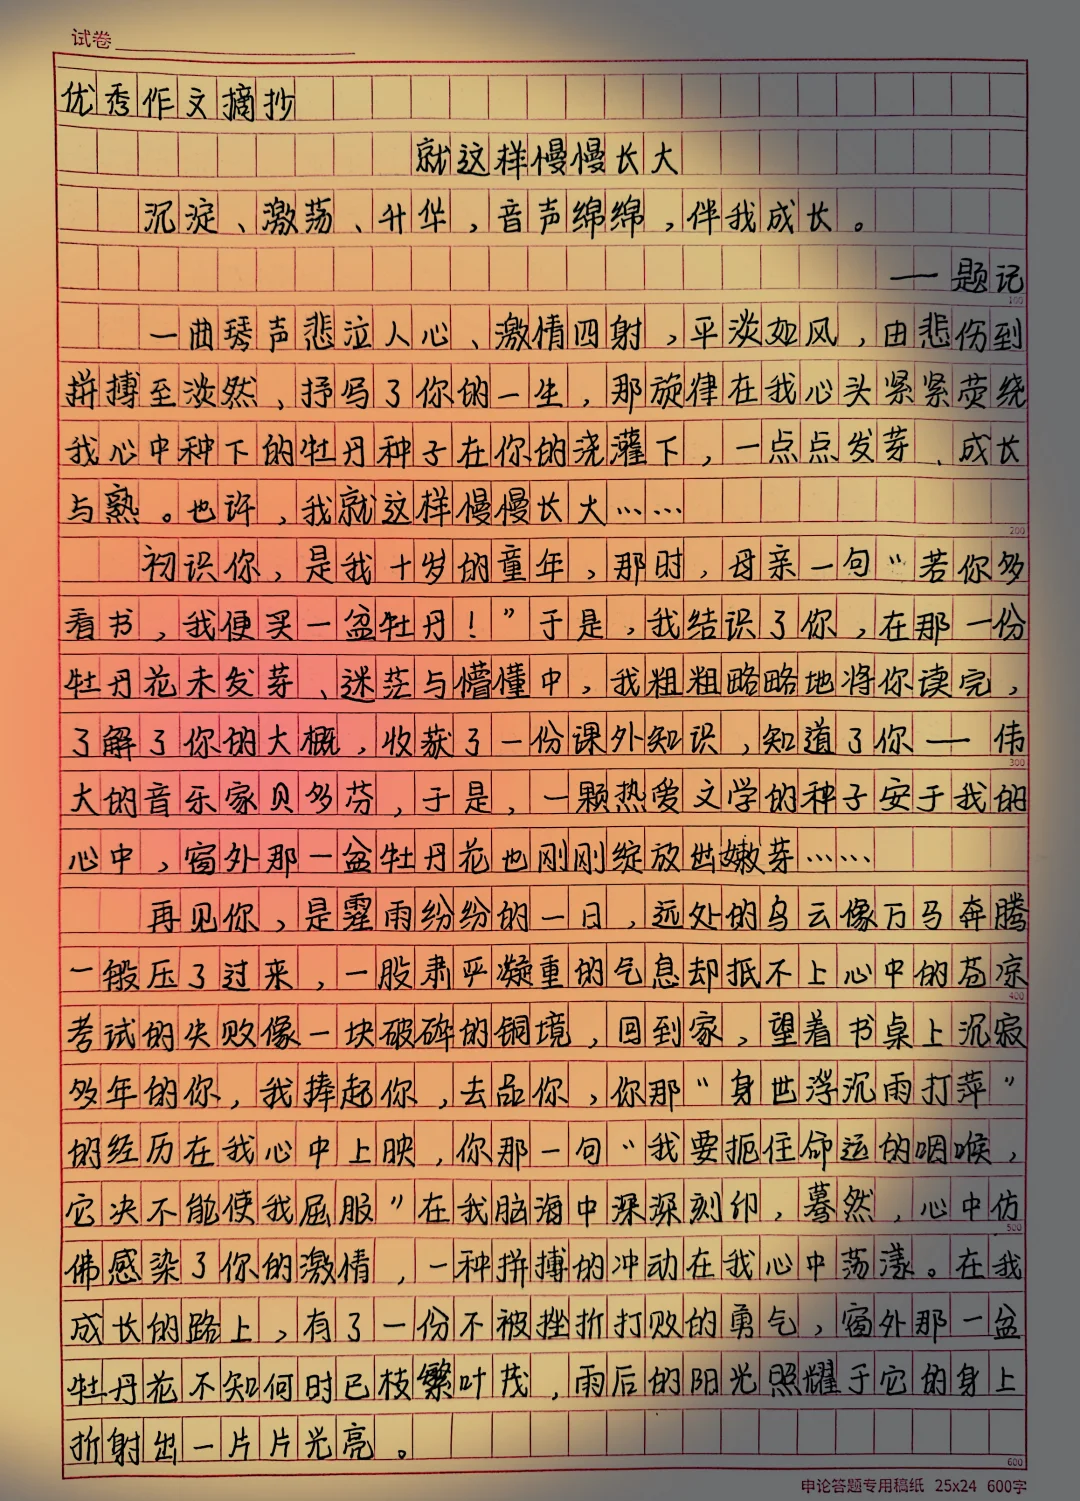 试卷
优秀作文摘抄
就这样慢慢长大
沉淀、激荡、升华,音声绵绵,伴我成长。
——题记
100
一曲琴声悲泣人心、激情四射,平淡如风,由悲伤到
拼搏至淡然、抒写了你的一生,那旋律在我心头紧紧荧绕
我心中种下的牡丹种子在你的浇灌下,一点点发芽、成长
与熟。也许,我就这样慢慢长大……
200
初识你,是我十岁的童年,那时,母亲一句“若你多
看书,我便买一盆牡丹!”于是,我结识了你,在那一份
牡丹花未发芽、迷茫与懵懂中,我粗粗略略地将你读完,
了解了你的大概,收获了一份课外知识,知道了你——伟
300
大的音乐家贝多芬,于是,一颗热爱文学的种子安于我的
心中,窗外那一盆牡丹花也刚刚绽放出嫩芽……
再见你,是霏雨纷纷的一日,远处的乌云像万马奔腾
一般压了过来,一股肃严凝重的气息却抵不上心中的苍凉
400
考试的失败像一块破碎的铜境,回到家,望着书桌上沉寂
多年的你,我捧起你,去品你,你那“身世浮沉雨打萍”
的经历在我心中上映,你那一句“我要扼住命运的咽喉,
它决不能使我屈服”在我脑海中深深刻印,蓦然,心中仿
500
佛感染了你的激情,一种拼搏的冲动在我心中荡漾。在我
成长的路上,有了一份不被挫折打败的勇气,窗外那一盆
牡丹花不知何时已枝繁叶茂,雨后的阳光照耀于它的身上
折射出一片片光亮。
600
申论答题专用稿纸 25x24 600字